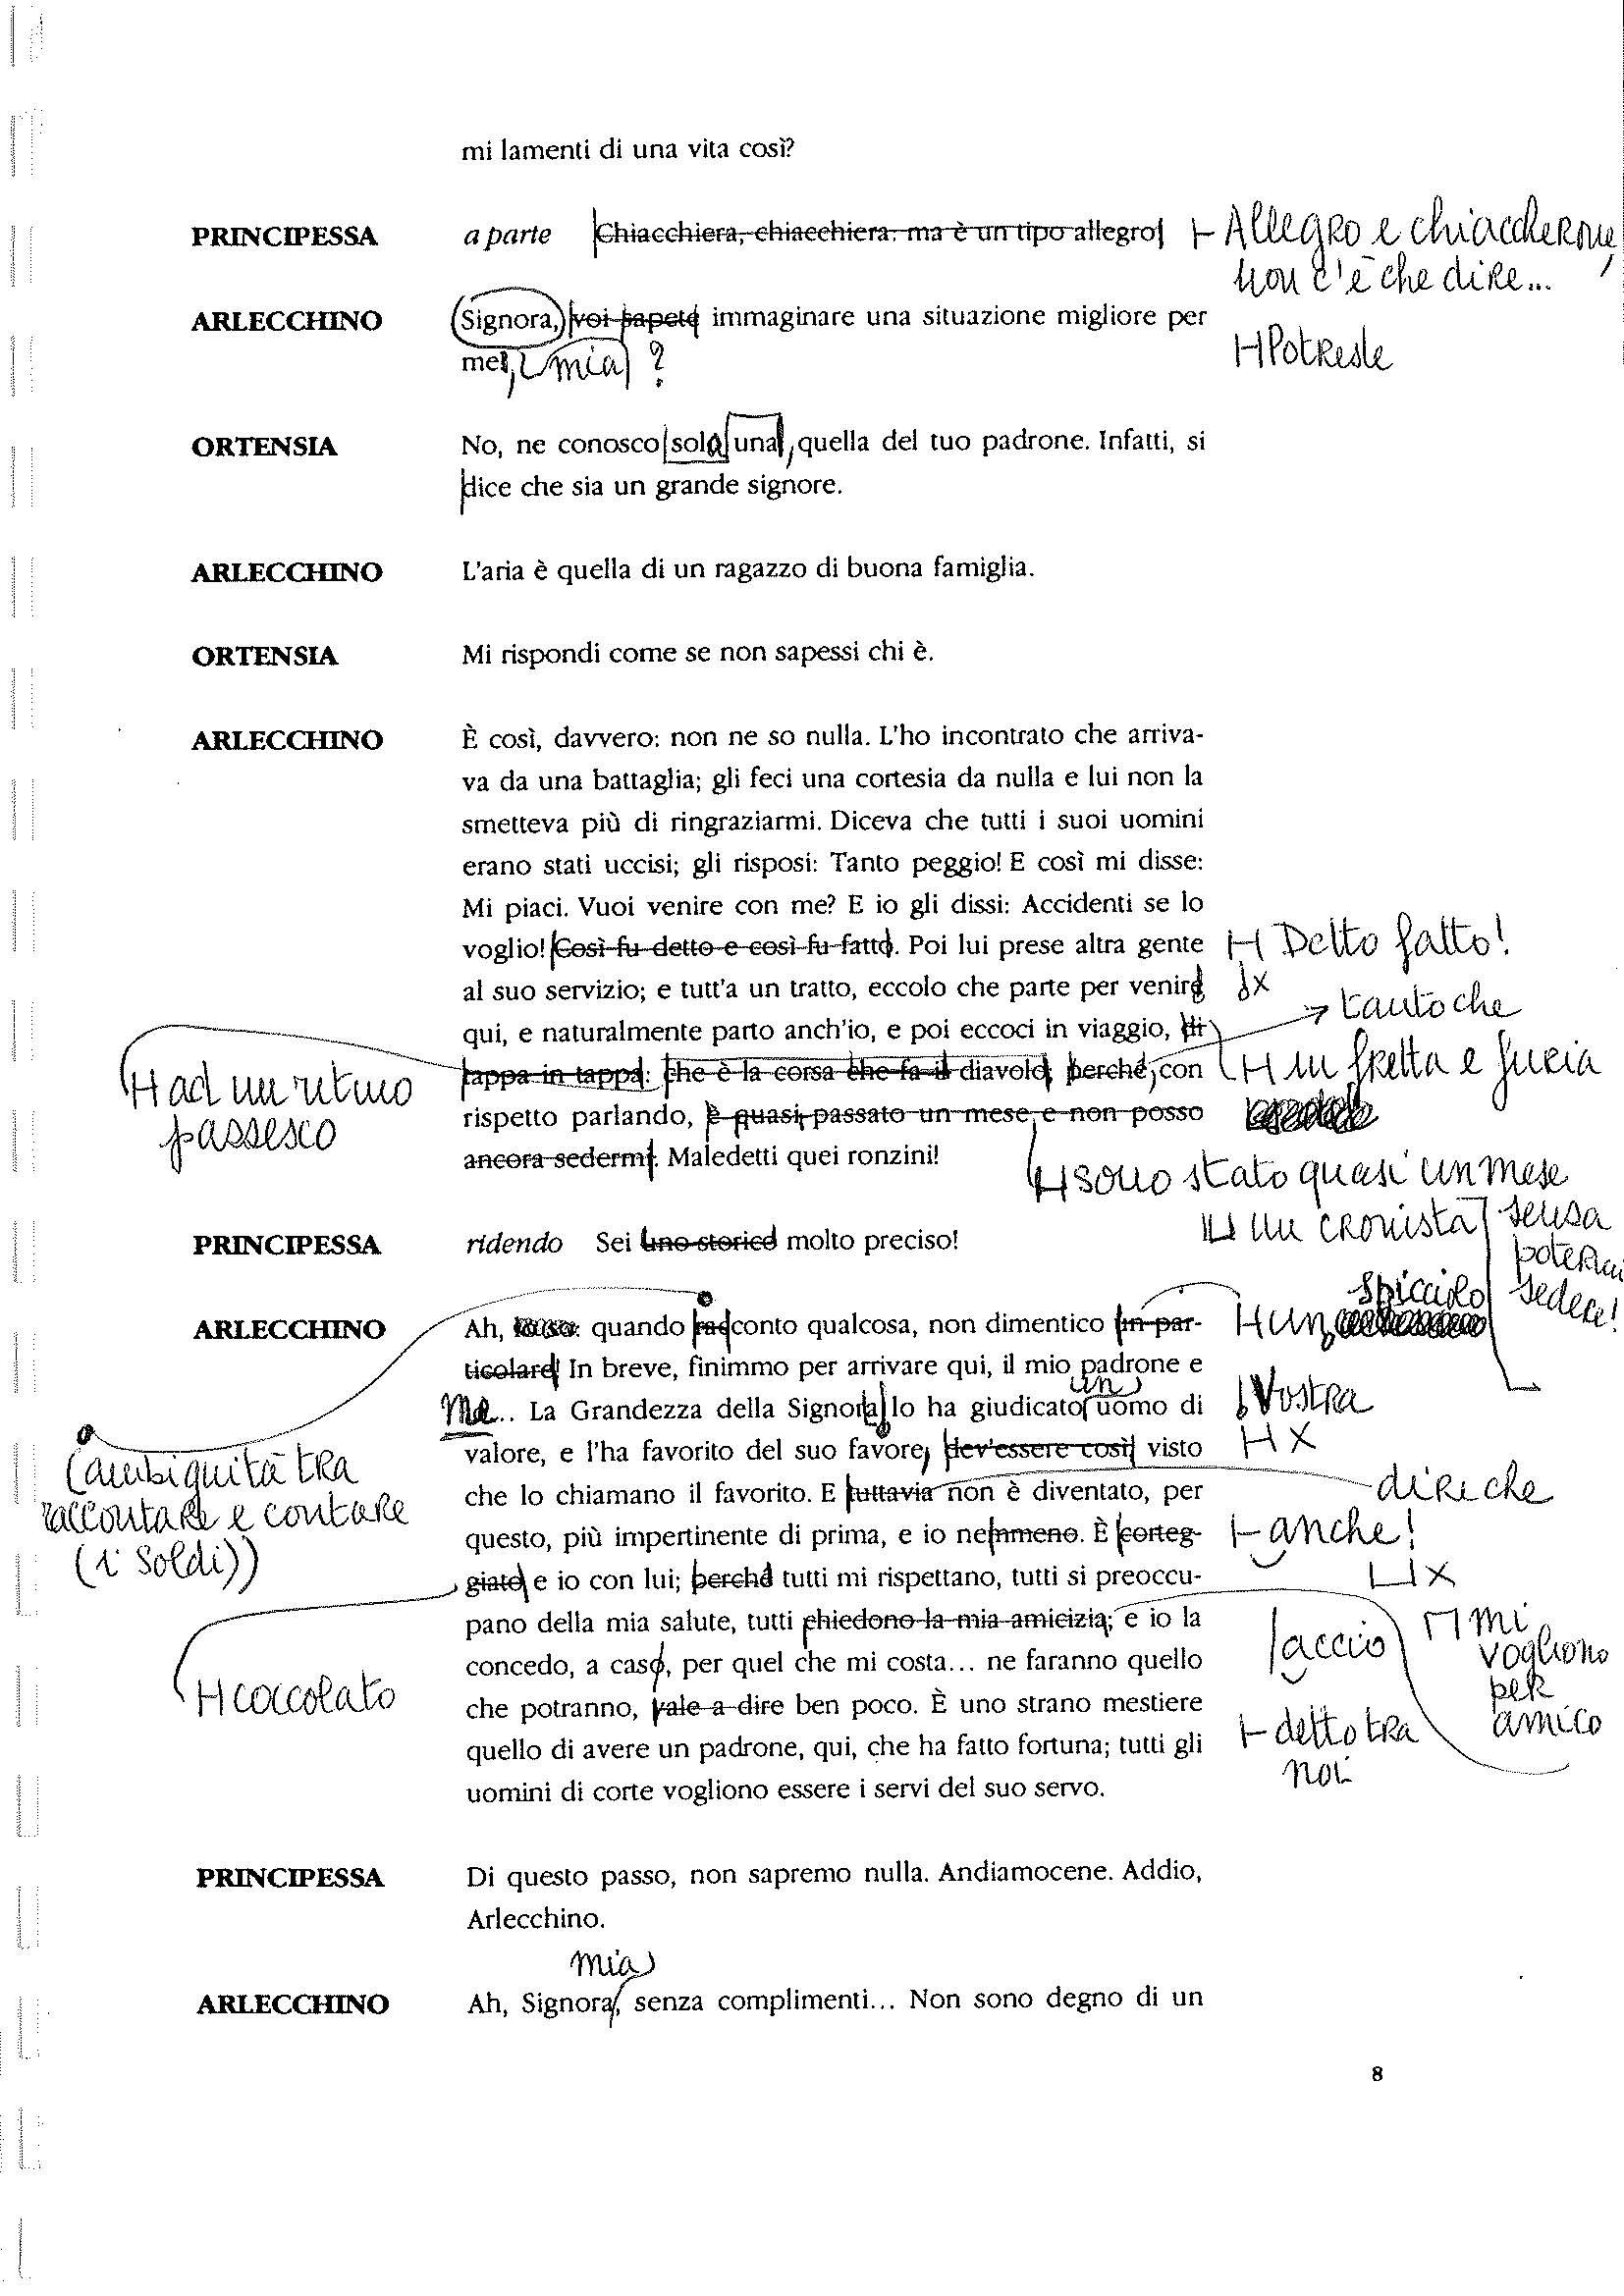 mi lamenti di una vita così?
PRINCIPESSA a parte Chiacchiera, chiacchiera: ma è un tipo allegro Allegro e chiaccherone,
non c'è che dire...
ARLECCHINO Signora, voi sapete immaginare una situazione migliore per
me, mia ? Potreste
ORTENSIA No, ne conosco solo una, quella del tuo padrone. Infatti, si
dice che sia un grande signore.
ARLECCHINO L'aria è quella di un ragazzo di buona famiglia.
ORTENSIA Mi rispondi come se non sapessi chi è.
ARLECCHINO È così, davvero: non ne so nulla. L'ho incontrato che arriva-
va da una battaglia; gli feci una cortesia da nulla e lui non la
smetteva più di ringraziarmi. Diceva che tutti i suoi uomini
erano stati uccisi; gli risposi: Tanto peggio! E così mi disse:
Mi piaci. Vuoi venire con me? E io gli dissi: Accidenti se lo
voglio! Così fu detto e così fu fatto. Poi lui prese altra gente Detto fatto!
al suo servizio; e tutt'a un tratto, eccolo che parte per venire x
tanto che
qui, e naturalmente parto anch'io, e poi eccoci in viaggio, di
tappa in tappa: che è la corsa che fa il diavolo; perché, con in fretta e furia
ad un ritmo
passesco
rispetto parlando, è quasi passato un mese e non posso
ancora sedermi. Maledetti quei ronzini!
sono stato quasi un mese
senza
potermi
sedere!
un cronista
PRINCIPESSA ridendo Sei uno storico molto preciso!
spicciolo
ARLECCHINO Ah, quando racconto qualcosa, non dimentico un par- un
ticolare! In breve, finimmo per arrivare qui, il mio padrone e
un
me... La Grandezza della Signora lo ha giudicato uomo di Vostra
valore, e l'ha favorito del suo favore, dev'essere così, visto x
(ambiguità tra
raccontare e contare
(i soldi))
che lo chiamano il favorito. E tuttavia non è diventato, per direi che
questo, più impertinente di prima, e io nemmeno. È corteg- anche!
giato e io con lui; perché tutti mi rispettano, tutti si preoccu- x
pano della mia salute, tutti chiedono la mia amicizia; e io la accio mi
vogliono
per
amico
concedo, a caso, per quel che mi costa... ne faranno quello
coccolato
che potranno, vale a dire ben poco. È uno strano mestiere
detto tra
noi
quello di avere un padrone, qui, che ha fatto fortuna; tutti gli
uomini di corte vogliono essere i servi del suo servo.
PRINCIPESSA Di questo passo, non sapremo nulla. Andiamocene. Addio,
Arlecchino.
mia
ARLECCHINO Ah, Signora, senza complimenti... Non sono degno di un
8